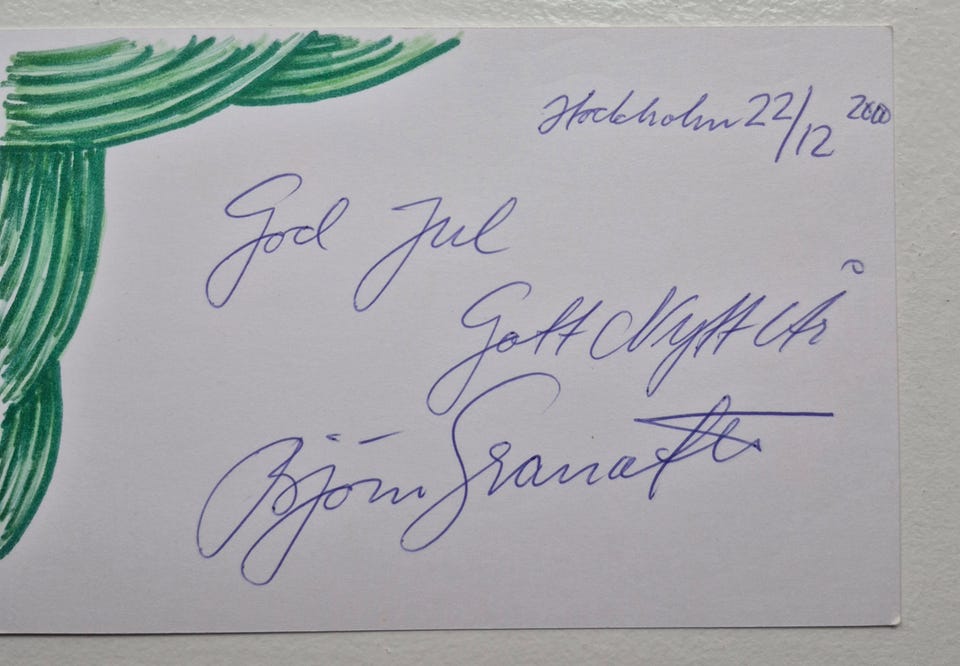 Stockholm 22/12 2000
God Jul
Gott Nytt År
Björn Granath